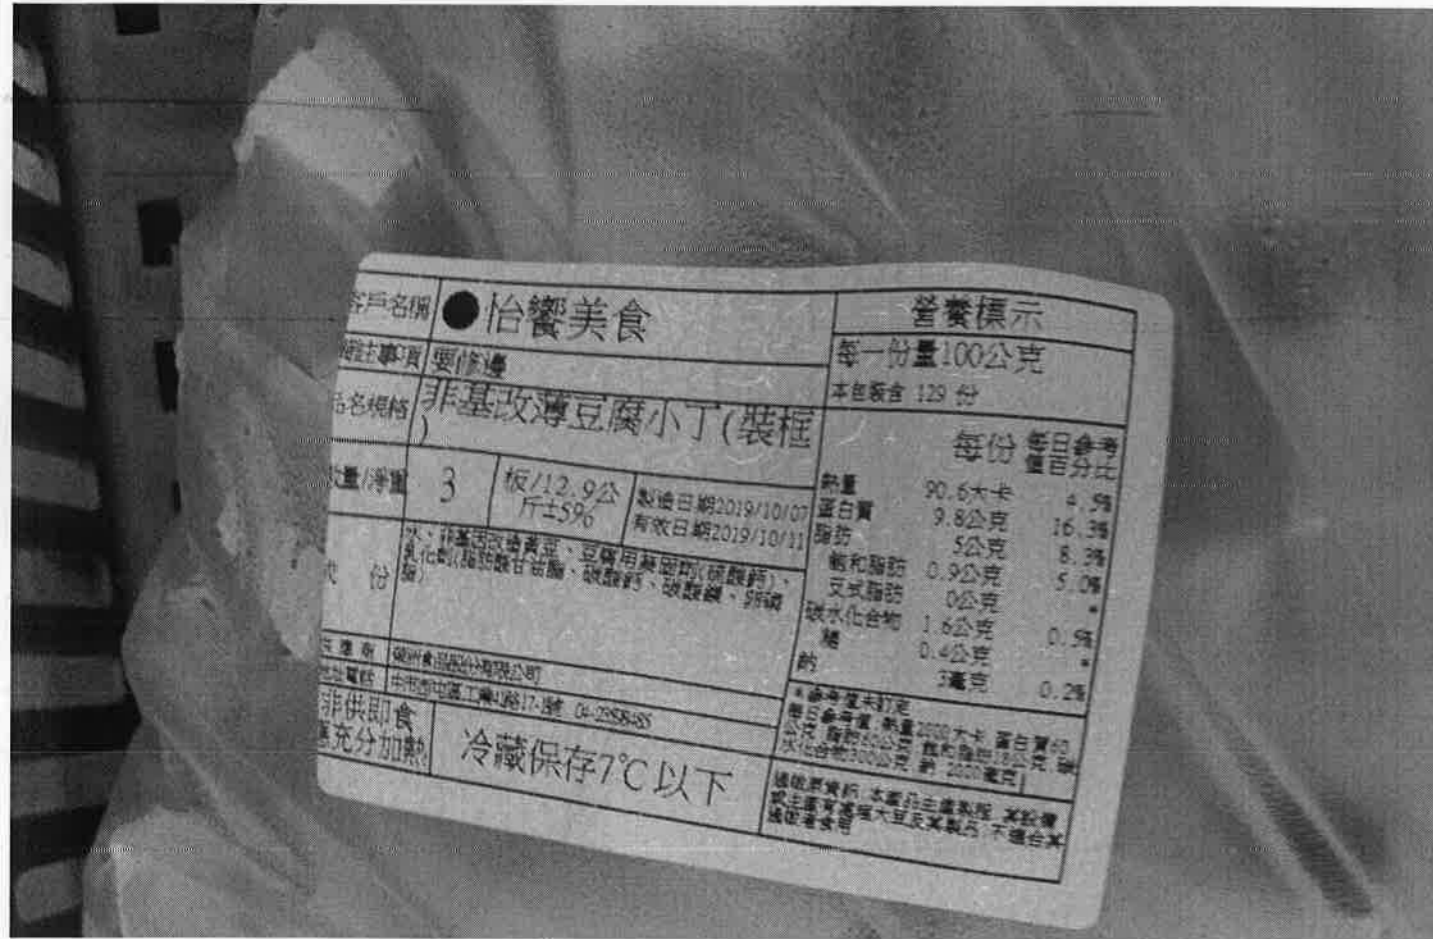 客戶名稱 ●怡饗美食
備註事項 要修邊
品名規格 非基改薄豆腐小丁(裝框
)
數量/淨重 3 板/12.9公
斤±5%
製造日期2019/10/07
有效日期2019/10/11
成 份 水、非基因改造黃豆、豆腐用凝固劑(硫酸鈣)、
乳化劑(脂肪酸甘油酯、碳酸鈣、碳酸鎂、卵磷
脂)
食品股份有限公司
地址電話 中市西屯區工業
非供即食
應充分加熱。
冷藏保存7℃以下
營養標示
每一份量100公克
本包裝含 129 份
每份 每日參考
值百分比
熱量 90.6大卡 4.5%
蛋白質 9.8公克 16.3%
脂肪 5公克 8.3%
飽和脂肪 0.9公克 5.0%
反式脂肪 0公克 *
碳水化合物 1.6公克 0.5%
糖 0.4公克 *
鈉 3毫克 0.2%
*參考值未訂定
每日參考值:熱量2000大卡、蛋白質60
公克、脂肪60公克、飽和脂肪18公克、碳
水化合物300公克、鈉 2000毫克
過敏原資訊:本產品生產製程,其設備
或生產有處理大豆及其製品,不適合其
過敏者食用